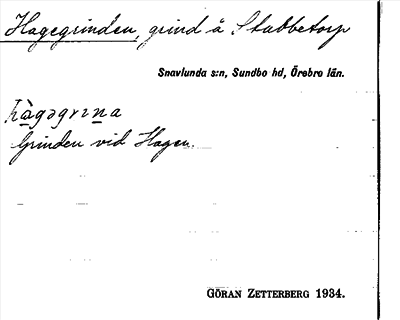 Hagegrinden, grind å Stubbetorp
Snavlunda s:n, Sundbo hd, Örebro län.
hàgəgrɪna
Grinden vid Hagen.
GÖRAN ZETTERBERG 1934.